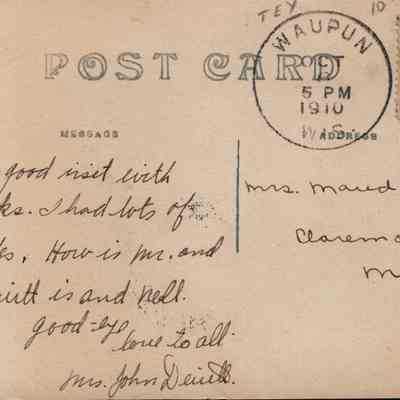 TEX 10
WAUPUN
OCT
5 PM
1910
WIS.
POST CARD
MESSAGE
ADDRESS
good visit with
ks. I had lots of
es. How is Mr. and
is and nell.
good-eye
love to all
Mrs. John
Mrs. Maud
Claremo
M